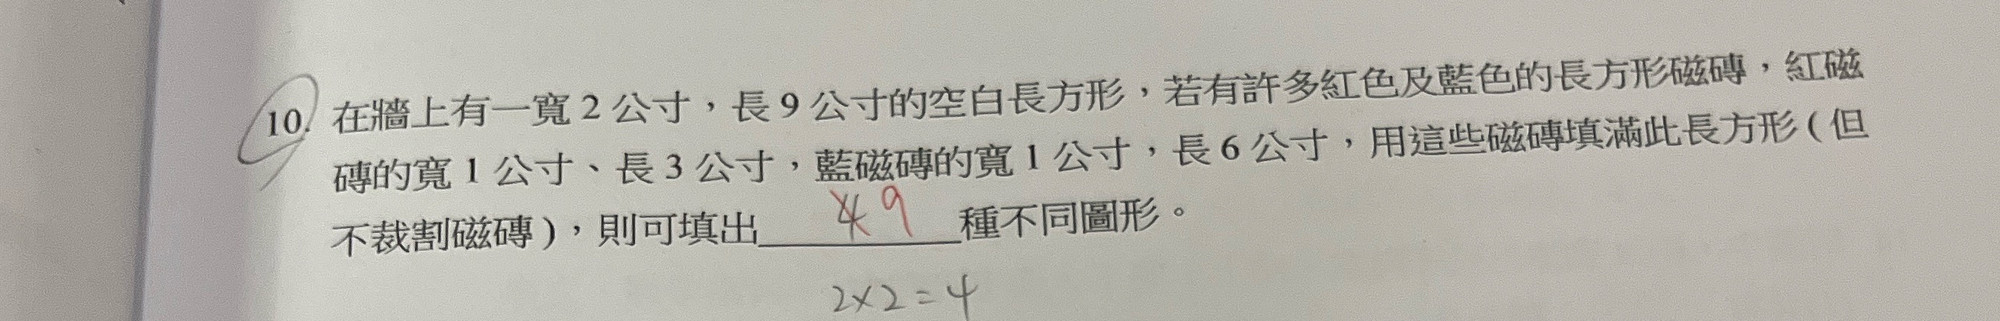 10. 在牆上有一寬 2 公寸，長 9 公寸的空白長方形，若有許多紅色及藍色的長方形磁磚，紅磁
磚的寬 1 公寸、長 3 公寸，藍磁磚的寬 1 公寸，長 6 公寸，用這些磁磚填滿此長方形 ( 但
不裁割磁磚 )，則可填出 4 9 種不同圖形。
2×2=4